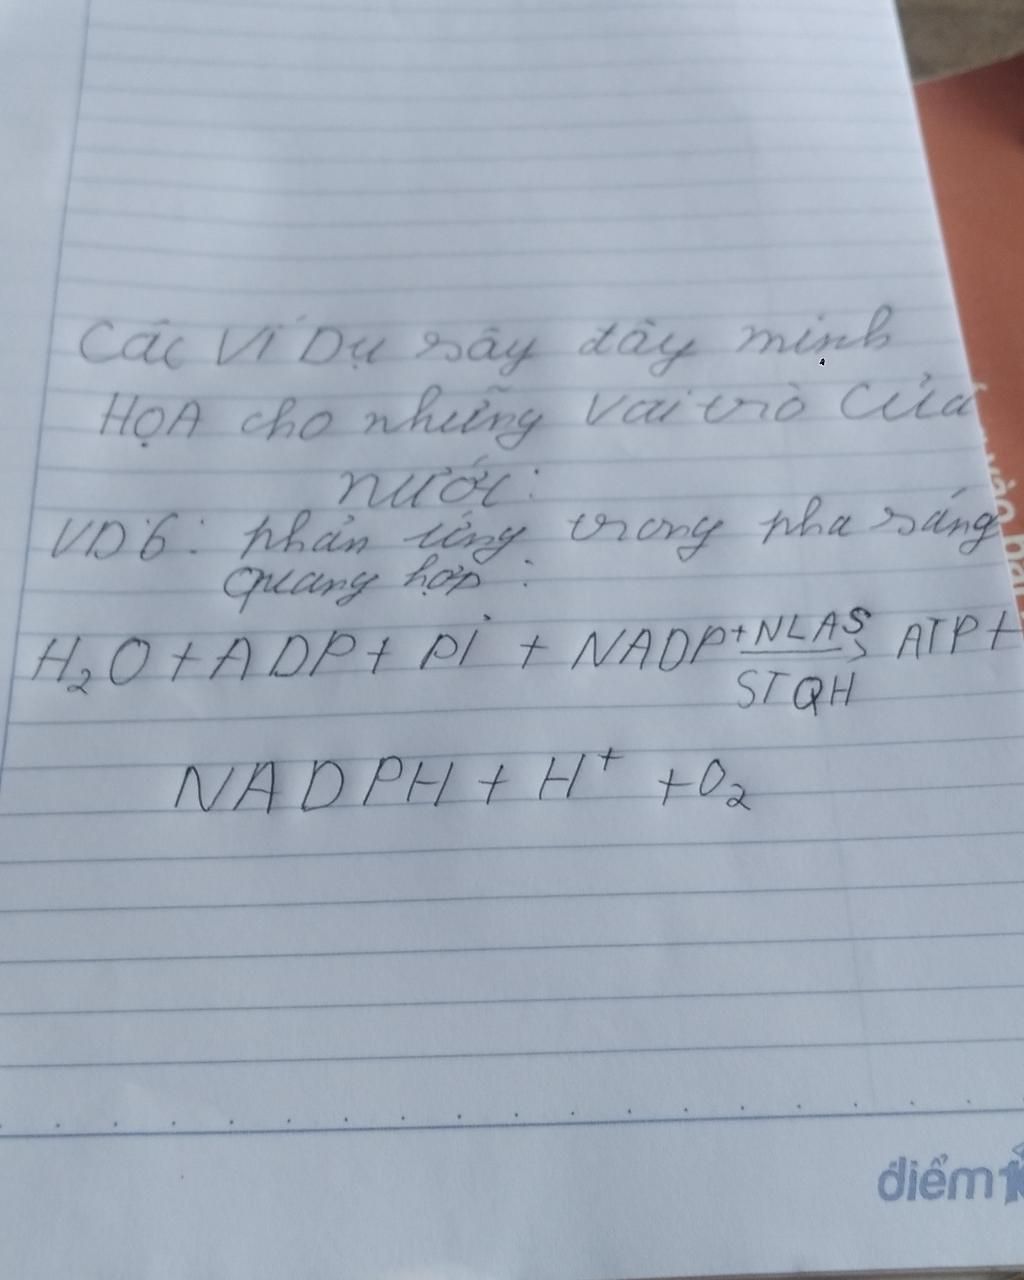 Các Ví Dụ sây đây minh
HỌA cho những vai trò Của
nước:
VD6: phản ứng trong pha sáng
quang hợp:
H₂O + ADP + Pi + NADP⁺ NLAS → ATP +
STQH
NADPH + H⁺ + O₂
điểm 1